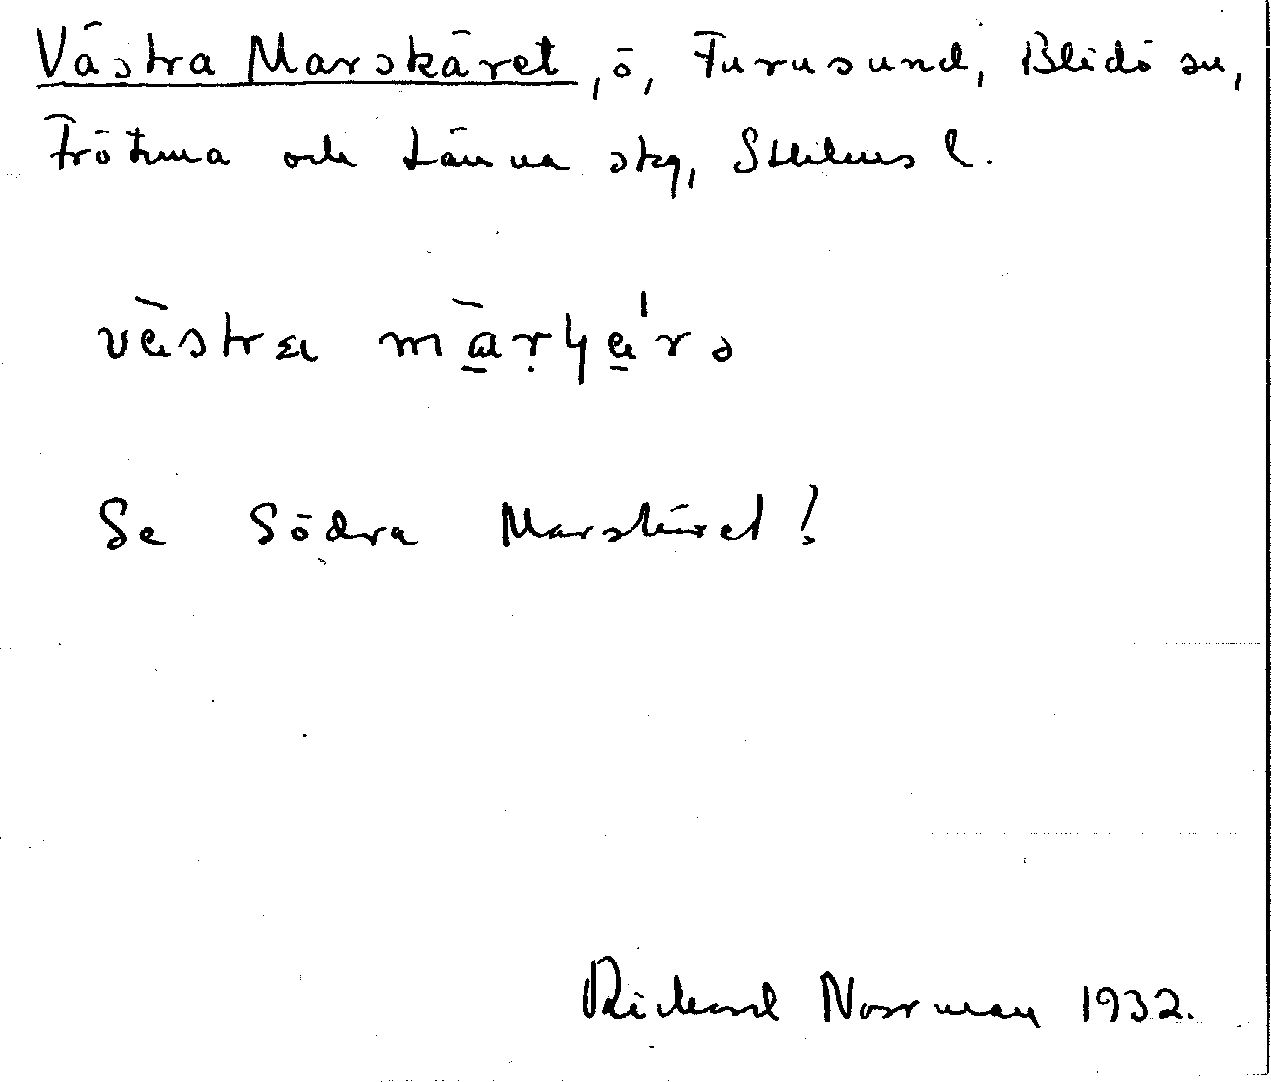 Västra Marskäret, ö, Furusund, Blidö sn,
Frötuna och Länna skg, Sthlms l.
västra
Se Södra Marskäret!
Rickard Norrman 1932.